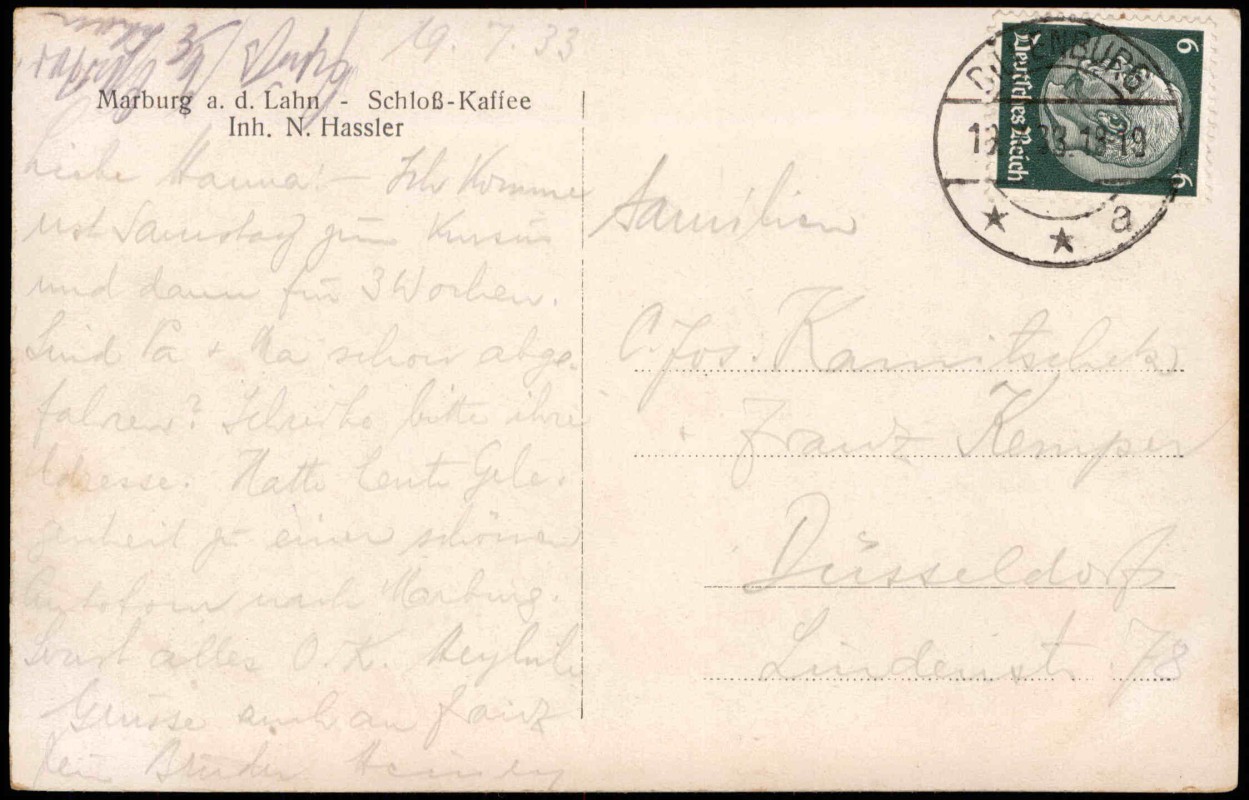 19. 7. 33
Marburg a. d. Lahn - Schloß-Kaffee
Inh. N. Hassler
Liebe Hanna! - Ich komme
erst Samstag zum Kursus
und dann für 3 Wochen.
Sind Pa + Ma schon abge-
fahren? Schreibe bitte ihre
Adresse. Hatte heute Gele-
genheit zu einer schönen
Autotour nach Marburg.
Sonst alles O.K. Herzliche
Grüsse auch an Franz
Dein Bruder
Deutsches Reich
6
6
19. 33. 18-19
a
Familien
C. Jos. Kamitschek
Franz Kemper
Düsseldorf
Lindenstr. 78